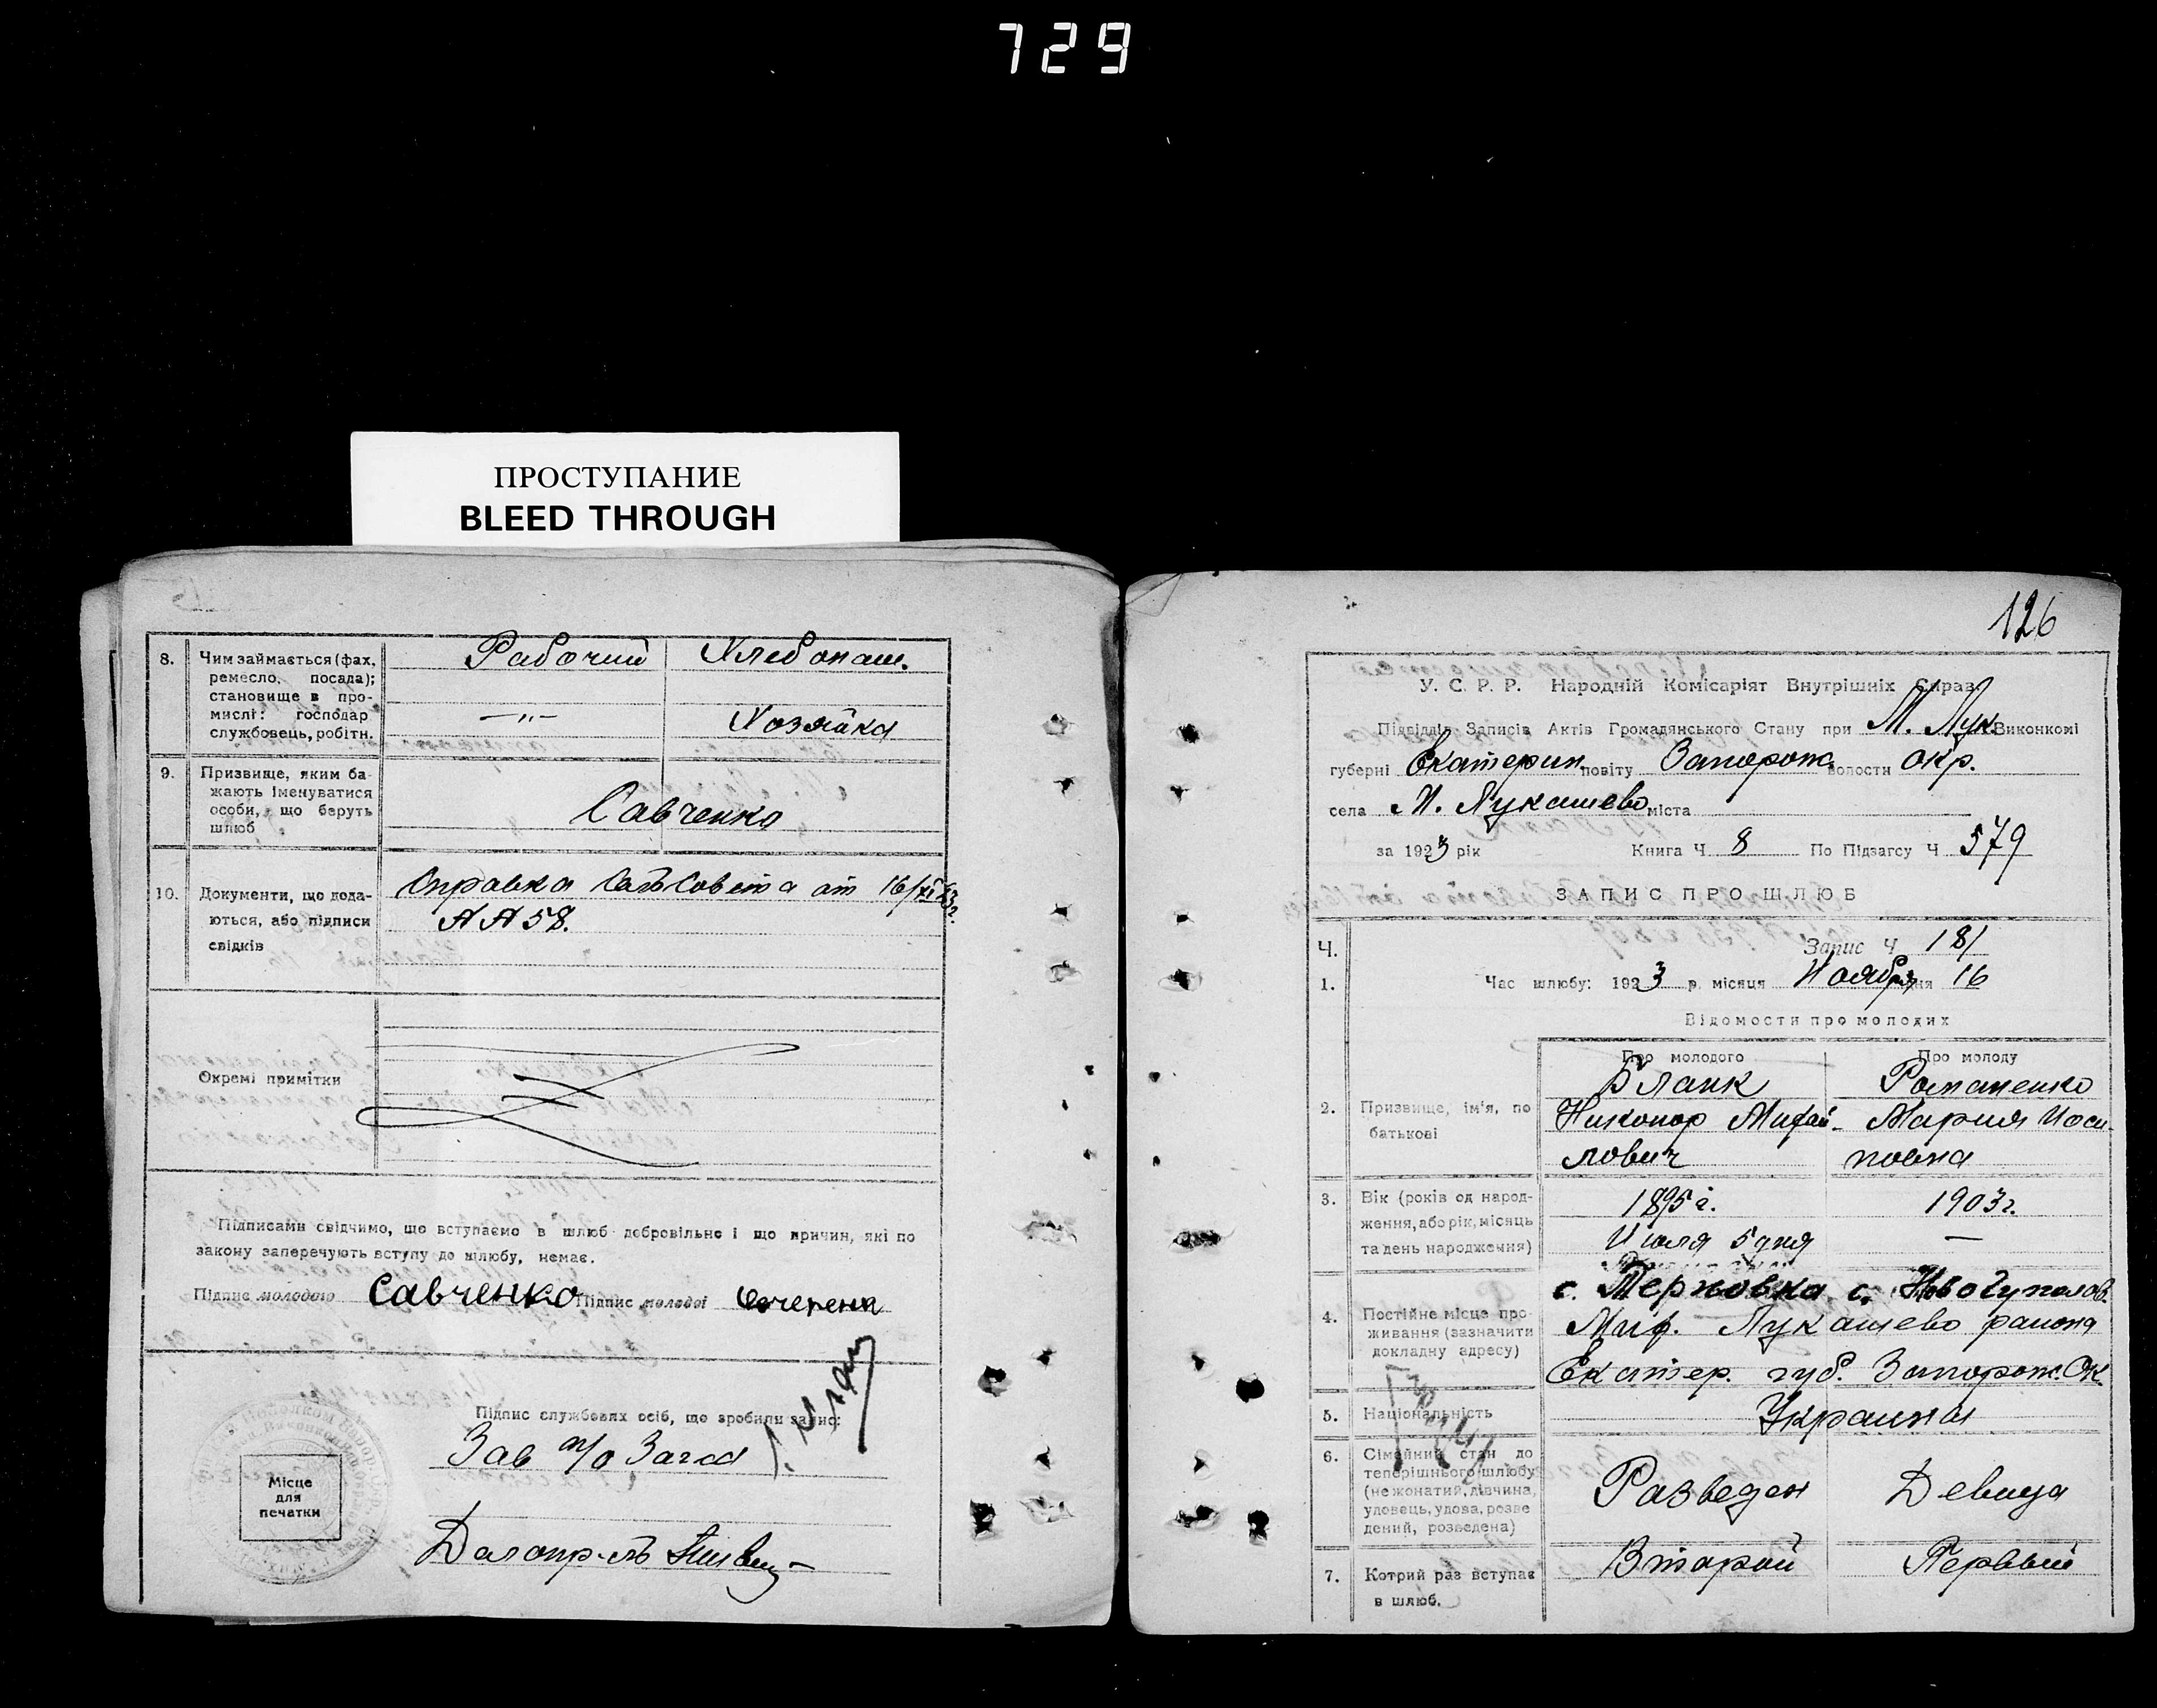 729
ПРОСТУПАНИЕ
BLEED THROUGH
8. Чим займається (фах, ремесло, посада); становище в промислі: господар службовець, робітн.
Рабочий Хлебопаш.
—"— Хозяйка
9. Призвище, яким бажають іменуватися особи, що беруть шлюб
Савченко
10. Документи, що додаються, або підписи свідків
Справка СельСовета от 16/XI 23г.
АА 58.
Окремі примітки
Підписами свідчимо, що вступаємо в шлюб добровільно і що причин, які по
закону заперечують вступу до шлюбу, немає.
Підпис молодого Савченко Підпис молодої
Підпис службових осіб, що зробили запис:
Зав п/о Загса
Місце
для
печатки
Делопр-ль
126
У. С. Р. Р. Народній Комісаріят Внутрішніх Справ
Підвідділ Записів Актів Громадянського Стану при М. Лук. Виконкомі
губерні Екатерин. повіту Запорож. волости окр.
села М. Лукашево міста
за 1923 рік Книга Ч 8 По Підзагсу Ч 579
ЗАПИС ПРО ШЛЮБ
Ч. Запис Ч 181
1. Час шлюбу: 1923 р. місяця Ноября дня 16
Відомости про молодих
Про молодого Про молоду
2. Призвище, ім'я, по батькові
Бланк Романенко
Никонор Михай- Мария Иоси-
лович повна
3. Вік (років од народження, або рік, місяць та день народження)
1895 г. 1903 г.
Июля 5 дня —
4. Постійне місце проживання (зазначити докладну адресу)
с. Терновка с. Новогуполов.
Мих. Лукашево района
Екатер. губ. Запорож. Ок.
5. Національність
Украинцы
6. Сімейний стан до теперішнього шлюбу (не жонатий, дівчина, удовець, удова, розведений, розведена)
Разведен Девица
7. Котрий раз вступає в шлюб.
Второй Первый